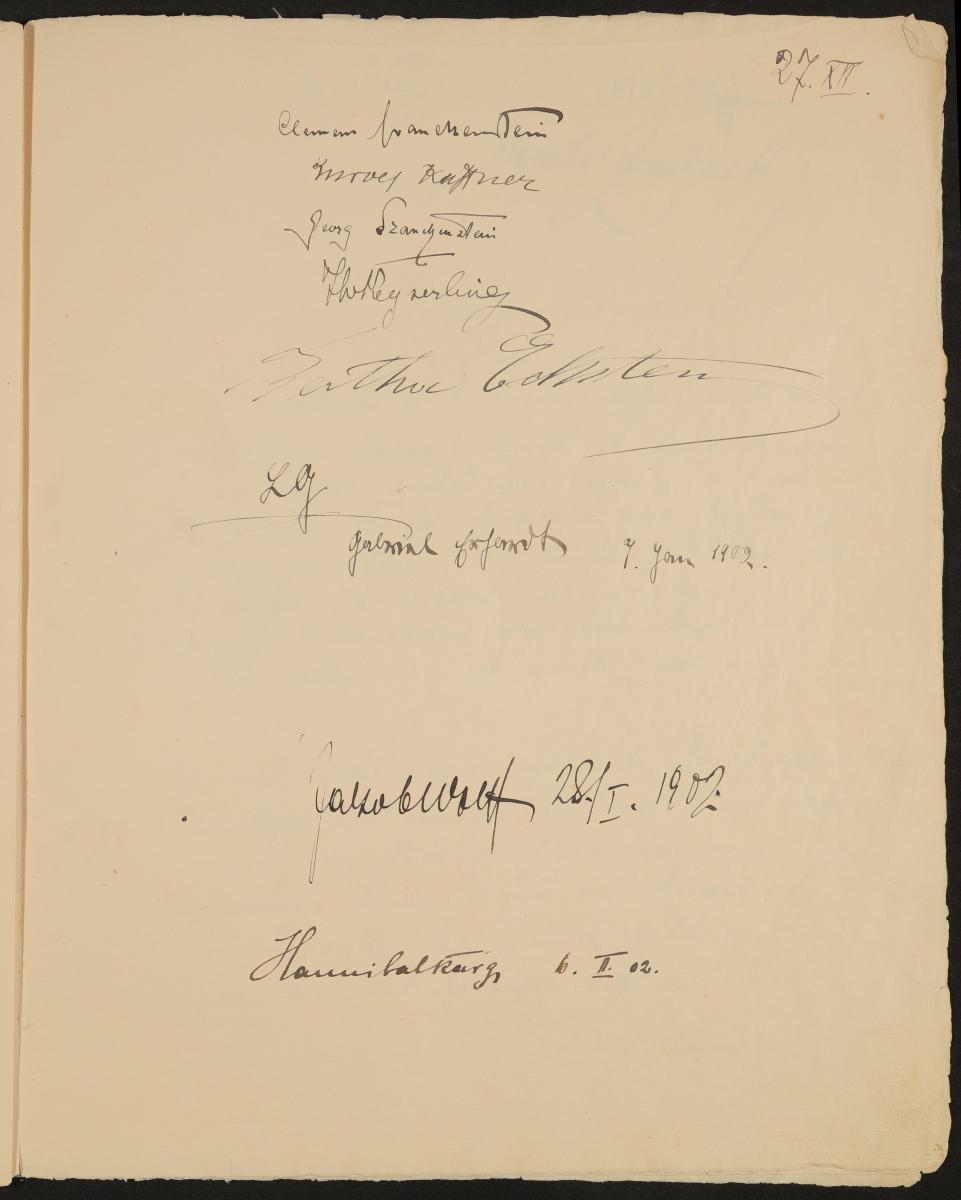 27. XII.
Clemens Franckenstein
Rudolf Kassner
Georg Franckenstein
HKeyserling
Bertha Eckstein
LG
Gabriel Erhardt 7. Jan 1902.
Jakob Wolff 28/I. 1902.
Hannibal Karg, 6. II. 02.